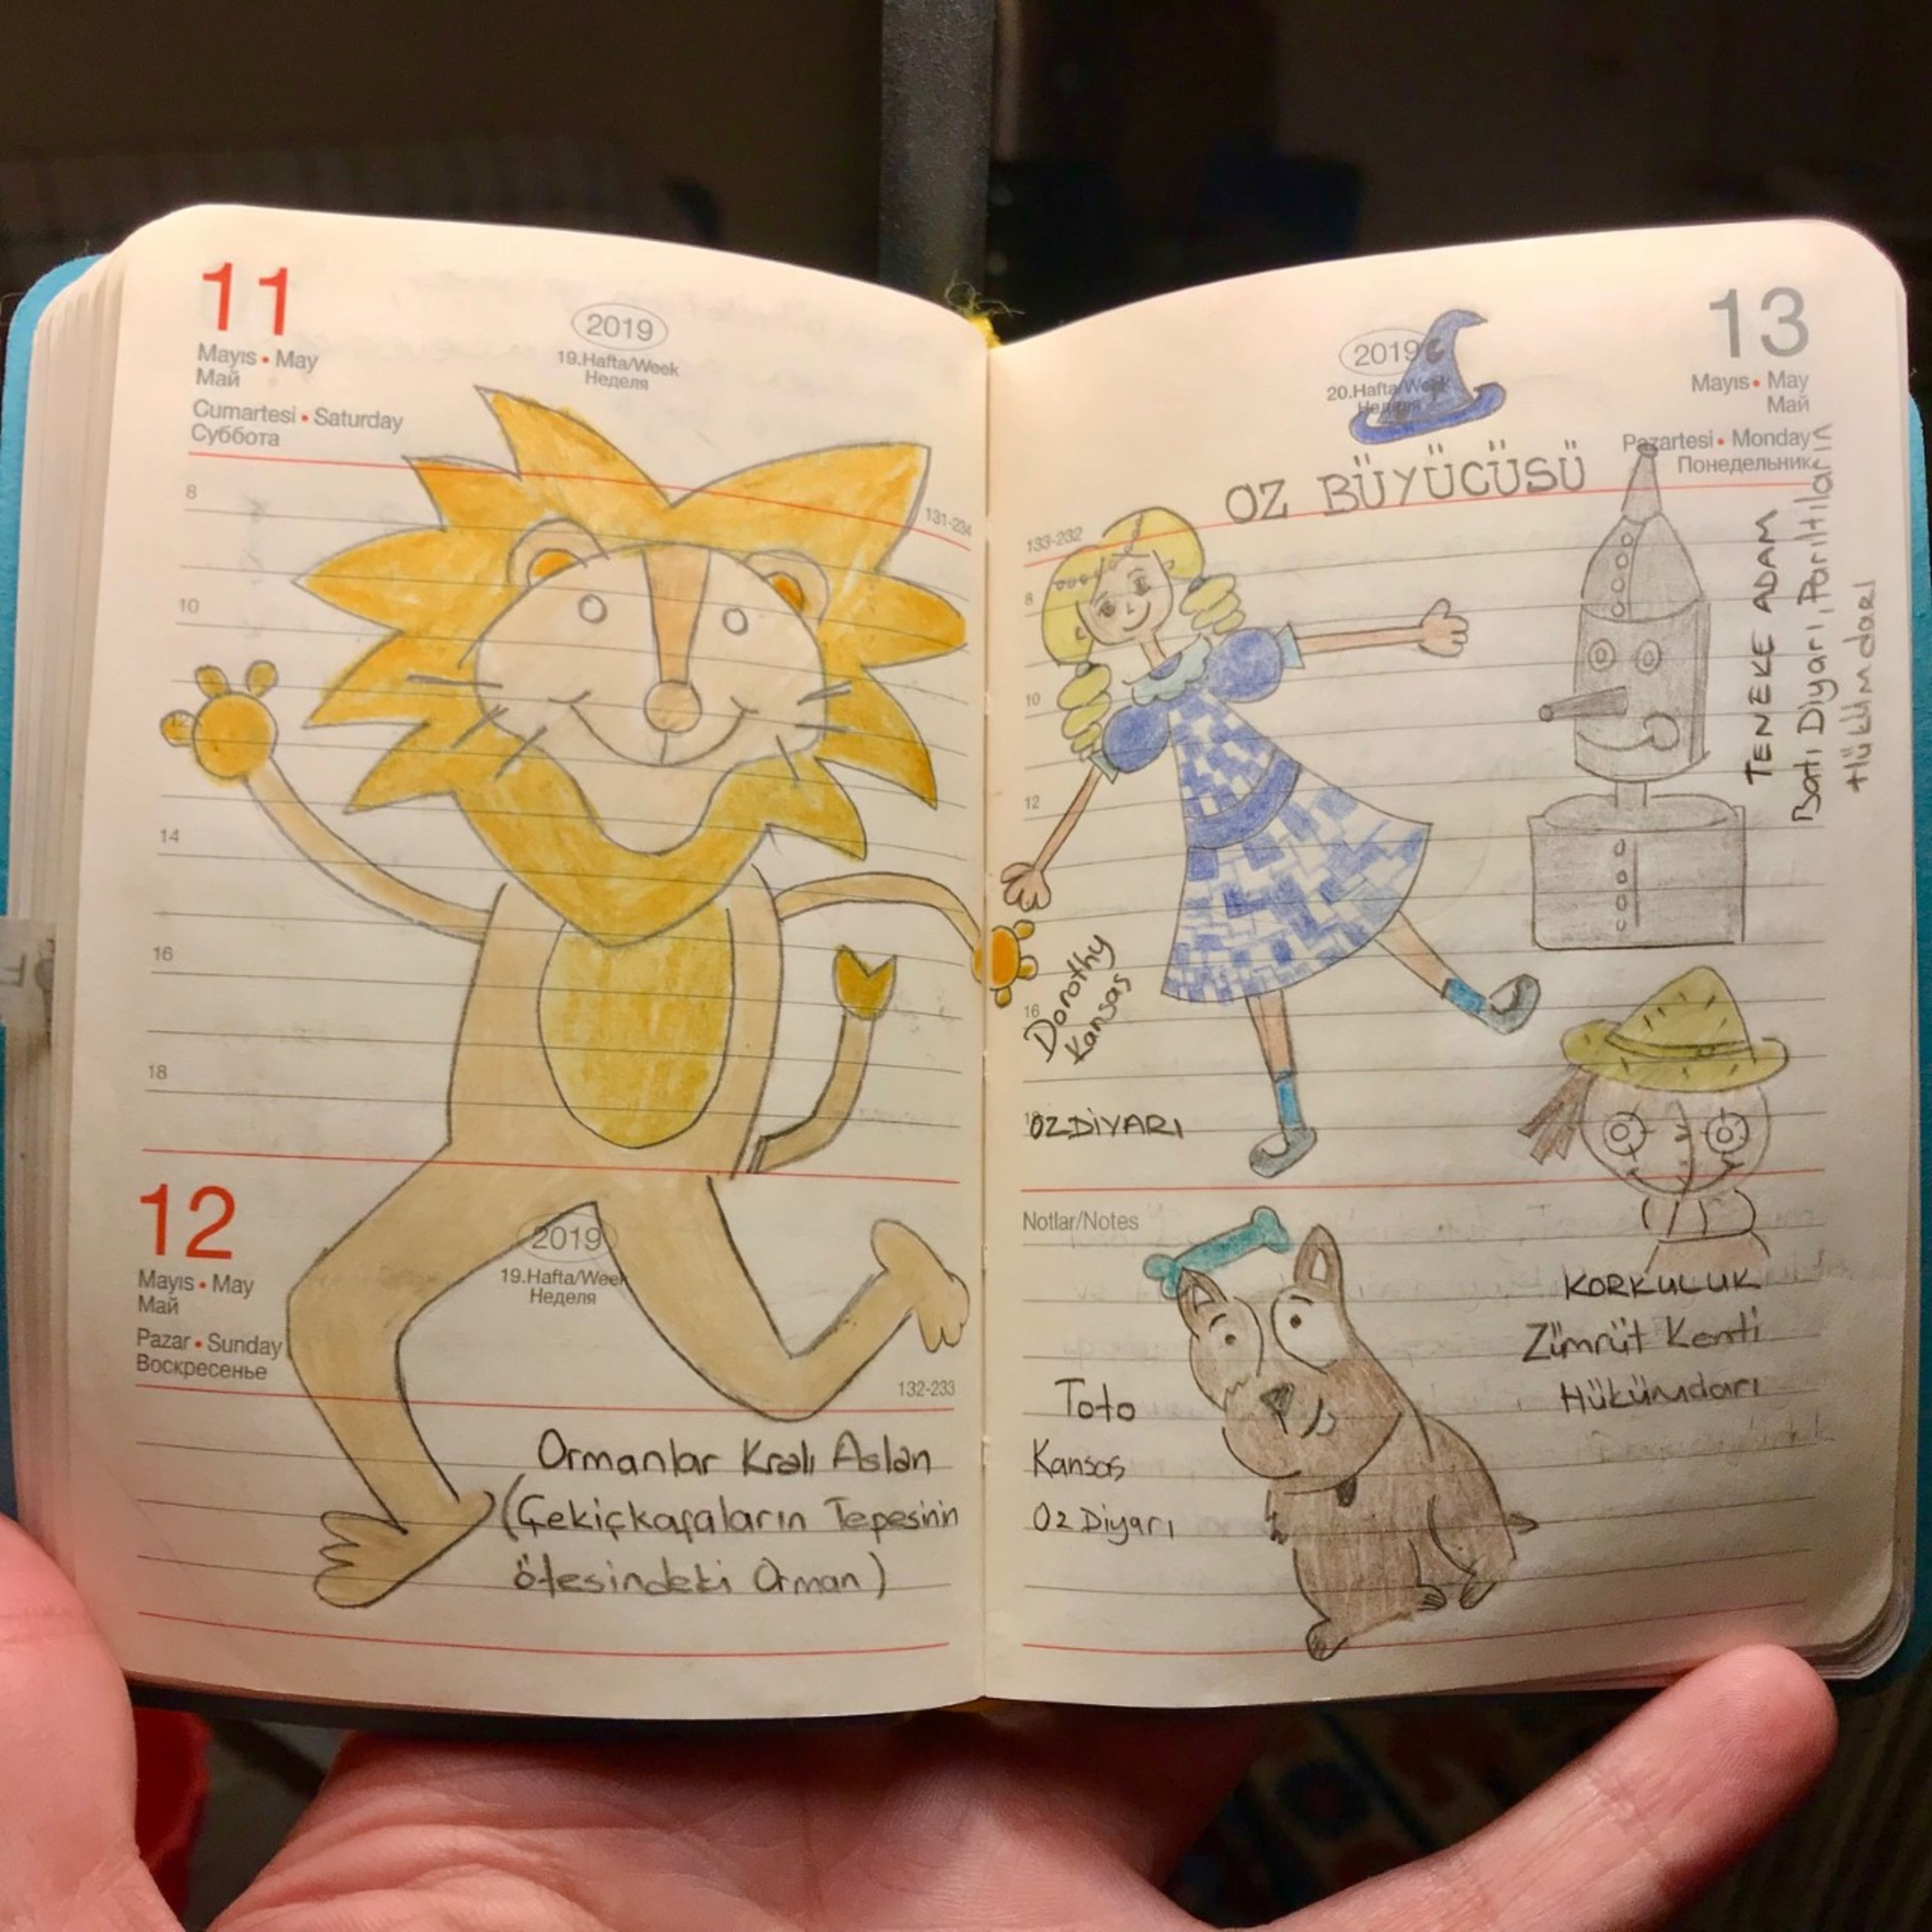 11
Mayıs • May
Май
Cumartesi • Saturday
Суббота
2019
19.Hafta/Week
Неделя
131-234
8
10
12
14
16
18
12
Mayıs • May
Май
Pazar • Sunday
Воскресенье
2019
19.Hafta/Week
Неделя
132-233
Ormanlar Kralı Aslan
(Çekiçkafaların Tepesinin
ötesindeki Orman)
2019
20.Hafta/Week
Неделя
13
Mayıs • May
Май
Pazartesi • Monday
Понедельник
OZ BÜYÜCÜSÜ
133-232
8
10
12
16
18
TENEKE ADAM
Batı Diyarı, Parıltıların
Hükümdarı
Dorothy
Kansas
OZ DİYARI
Notlar/Notes
KORKULUK
Zümrüt Kenti
Hükümdarı
Toto
Kansas
Oz Diyarı